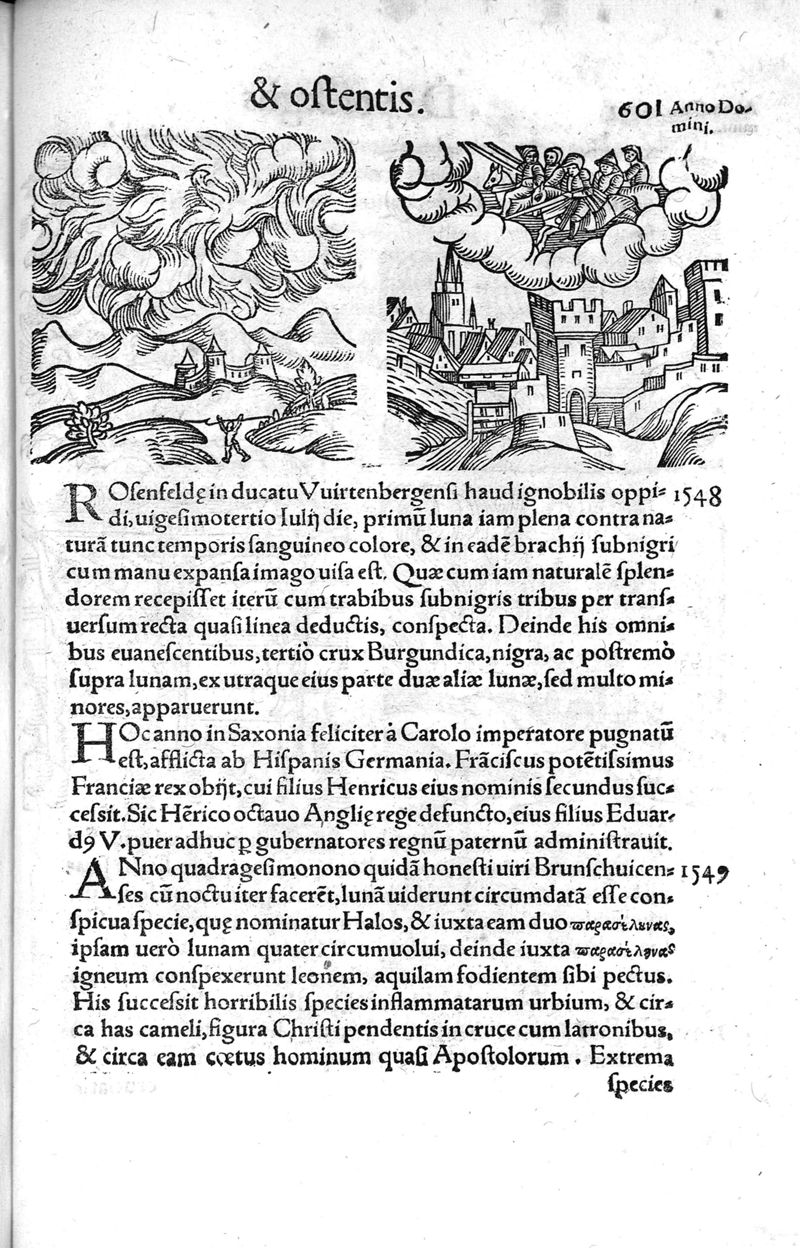 & oſtentis.
601 Anno Do-
mini.
ROſenfeldę in ducatu Vuirtenbergenſi haud ignobilis oppi⸗ 1548
di, uigeſimotertio Iulij die, primū luna iam plena contra na⸗
turā tunc temporis ſanguineo colore, & in eadē brachij ſubnigri
cum manu expanſa imago uiſa eſt. Quæ cum iam naturalē ſplen⸗
dorem recepiſſet iterū cum trabibus ſubnigris tribus per tranſ⸗
uerſum recta quaſi linea deductis, conſpecta. Deinde his omni⸗
bus euaneſcentibus, tertiò crux Burgundica, nigra, ac poſtremò
ſupra lunam, ex utraque eius parte duæ aliæ lunæ, ſed multo mi⸗
nores, apparuerunt.
HOc anno in Saxonia feliciter à Carolo imperatore pugnatū
eſt, afflicta ab Hiſpanis Germania. Frāciſcus potētiſſimus
Franciæ rex obijt, cui filius Henricus eius nominis ſecundus ſuc⸗
ceſſit. Sic Hērico octauo Anglię rege defuncto, eius filius Eduar⸗
dꝰ V. puer adhuc ꝑ gubernatores regnū paternū adminiſtrauit.
ANno quadrageſimonono quidā honeſti uiri Brunſchuicen⸗ 1549
ſes cū noctu iter facerēt, lunā uiderunt circumdatā eſſe con⸗
ſpicua ſpecie, quę nominatur Halos, & iuxta eam duo παρασέλυνας,
ipſam uerò lunam quater circumuolui, deinde iuxta παρασέληνας
igneum conſpexerunt leonem, aquilam fodientem ſibi pectus.
His ſucceſſit horribilis ſpecies inflammatarum urbium, & cir⸗
ca has cameli, figura Chriſti pendentis in cruce cum latronibus,
& circa eam cœtus hominum quaſi Apoſtolorum. Extrema
ſpecies